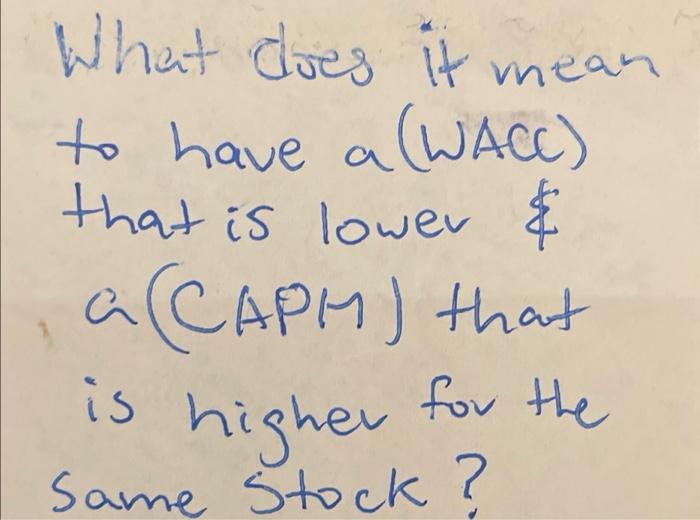 What does it mean
to have a (WACC)
that is lower &
a (CAPM) that
is higher for the
same stock?